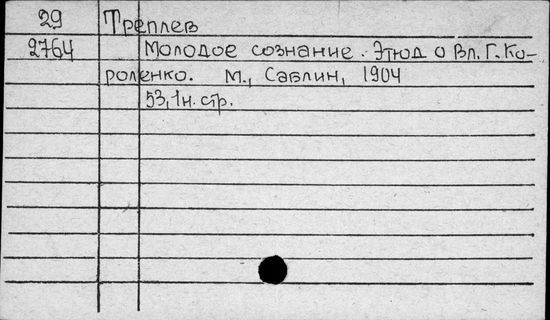 29 Треплев
2764 Молодое сознание. Этюд о Вл. Г. Ко-
роленко. М., Саблин, 1904
53, 1 н. стр.